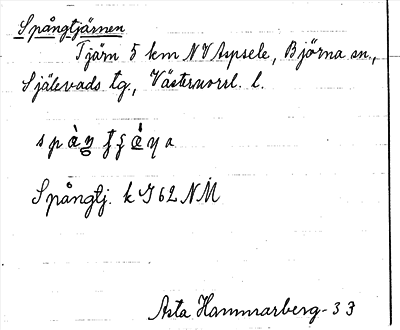 Spångtjärnen
Tjärn 5 km NV Aspsele, Björna sn.,
Själevads tg., Västernorrl. l.
Spångtj. k J 62 NM
Asta Hammarberg - 33